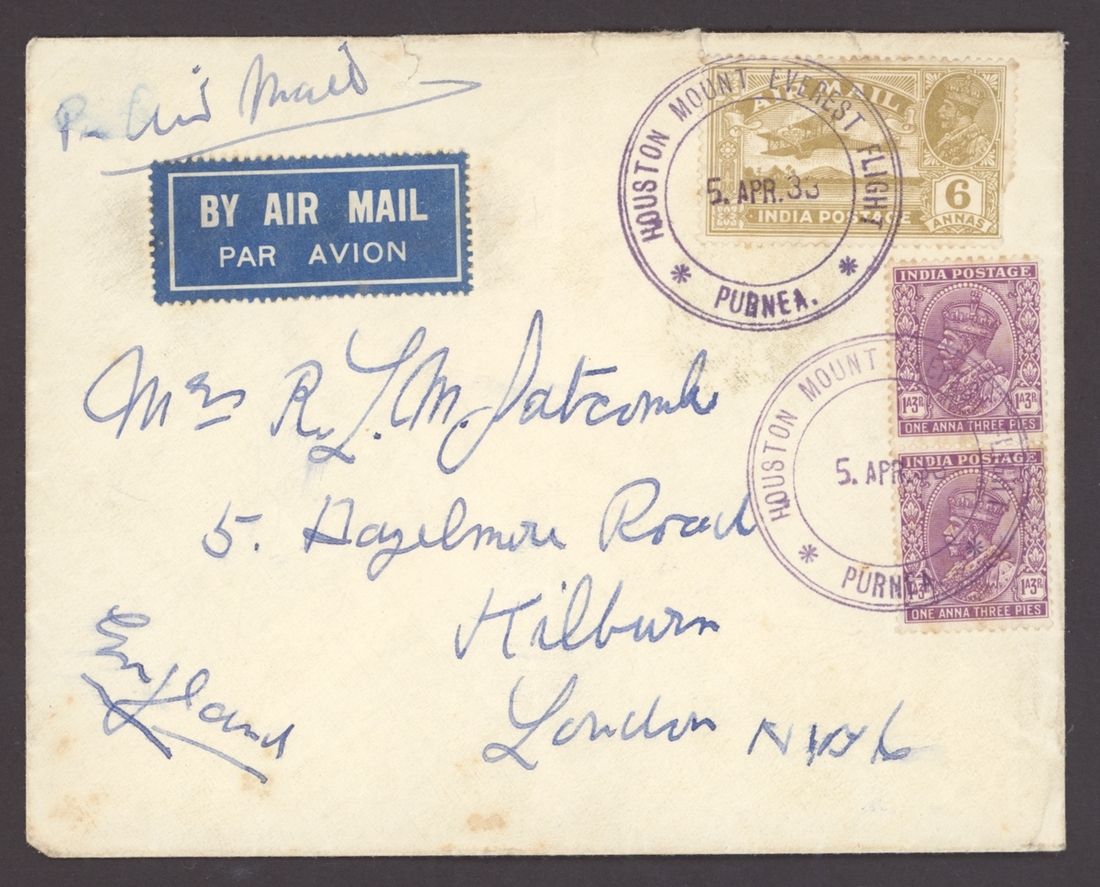 Per Air Mail
BY AIR MAIL
PAR AVION
HOUSTON MOUNT EVEREST FLIGHT
5. APR. 33
* PURNEA. *
AIR MAIL
INDIA POSTAGE
6
ANNAS
INDIA POSTAGE
1A3P 1A3P
ONE ANNA THREE PIES
HOUSTON MOUNT
5. APR.
* PURNEA *
INDIA POSTAGE
1A3P
ONE ANNA THREE PIES
Mrs R. L. M. Satcombe
5. Hazelmere Road
Kilburn
London NW6
England